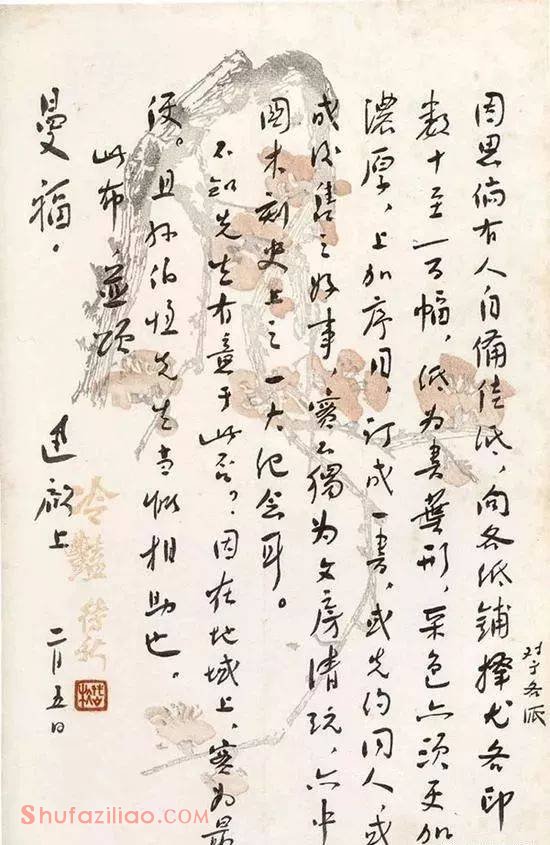 因思倘有人自備佳纸，向各纸鋪擇尤各印
对于各派
數十至一百幅，纸为書葉形，采色亦須更加
濃厚，上加序目，订成一書，或先约同人，或
成後售之好事，實不獨为文房清玩，亦中
國木刻史上之一大纪念耳。
不知先生有意于此否？因在地域上，實为最
便。且孙伯恒先生當能相助也。
此布，並颂
曼福。
迅啟上 二月五日
冷豔 待秋
Shufaziliao.com